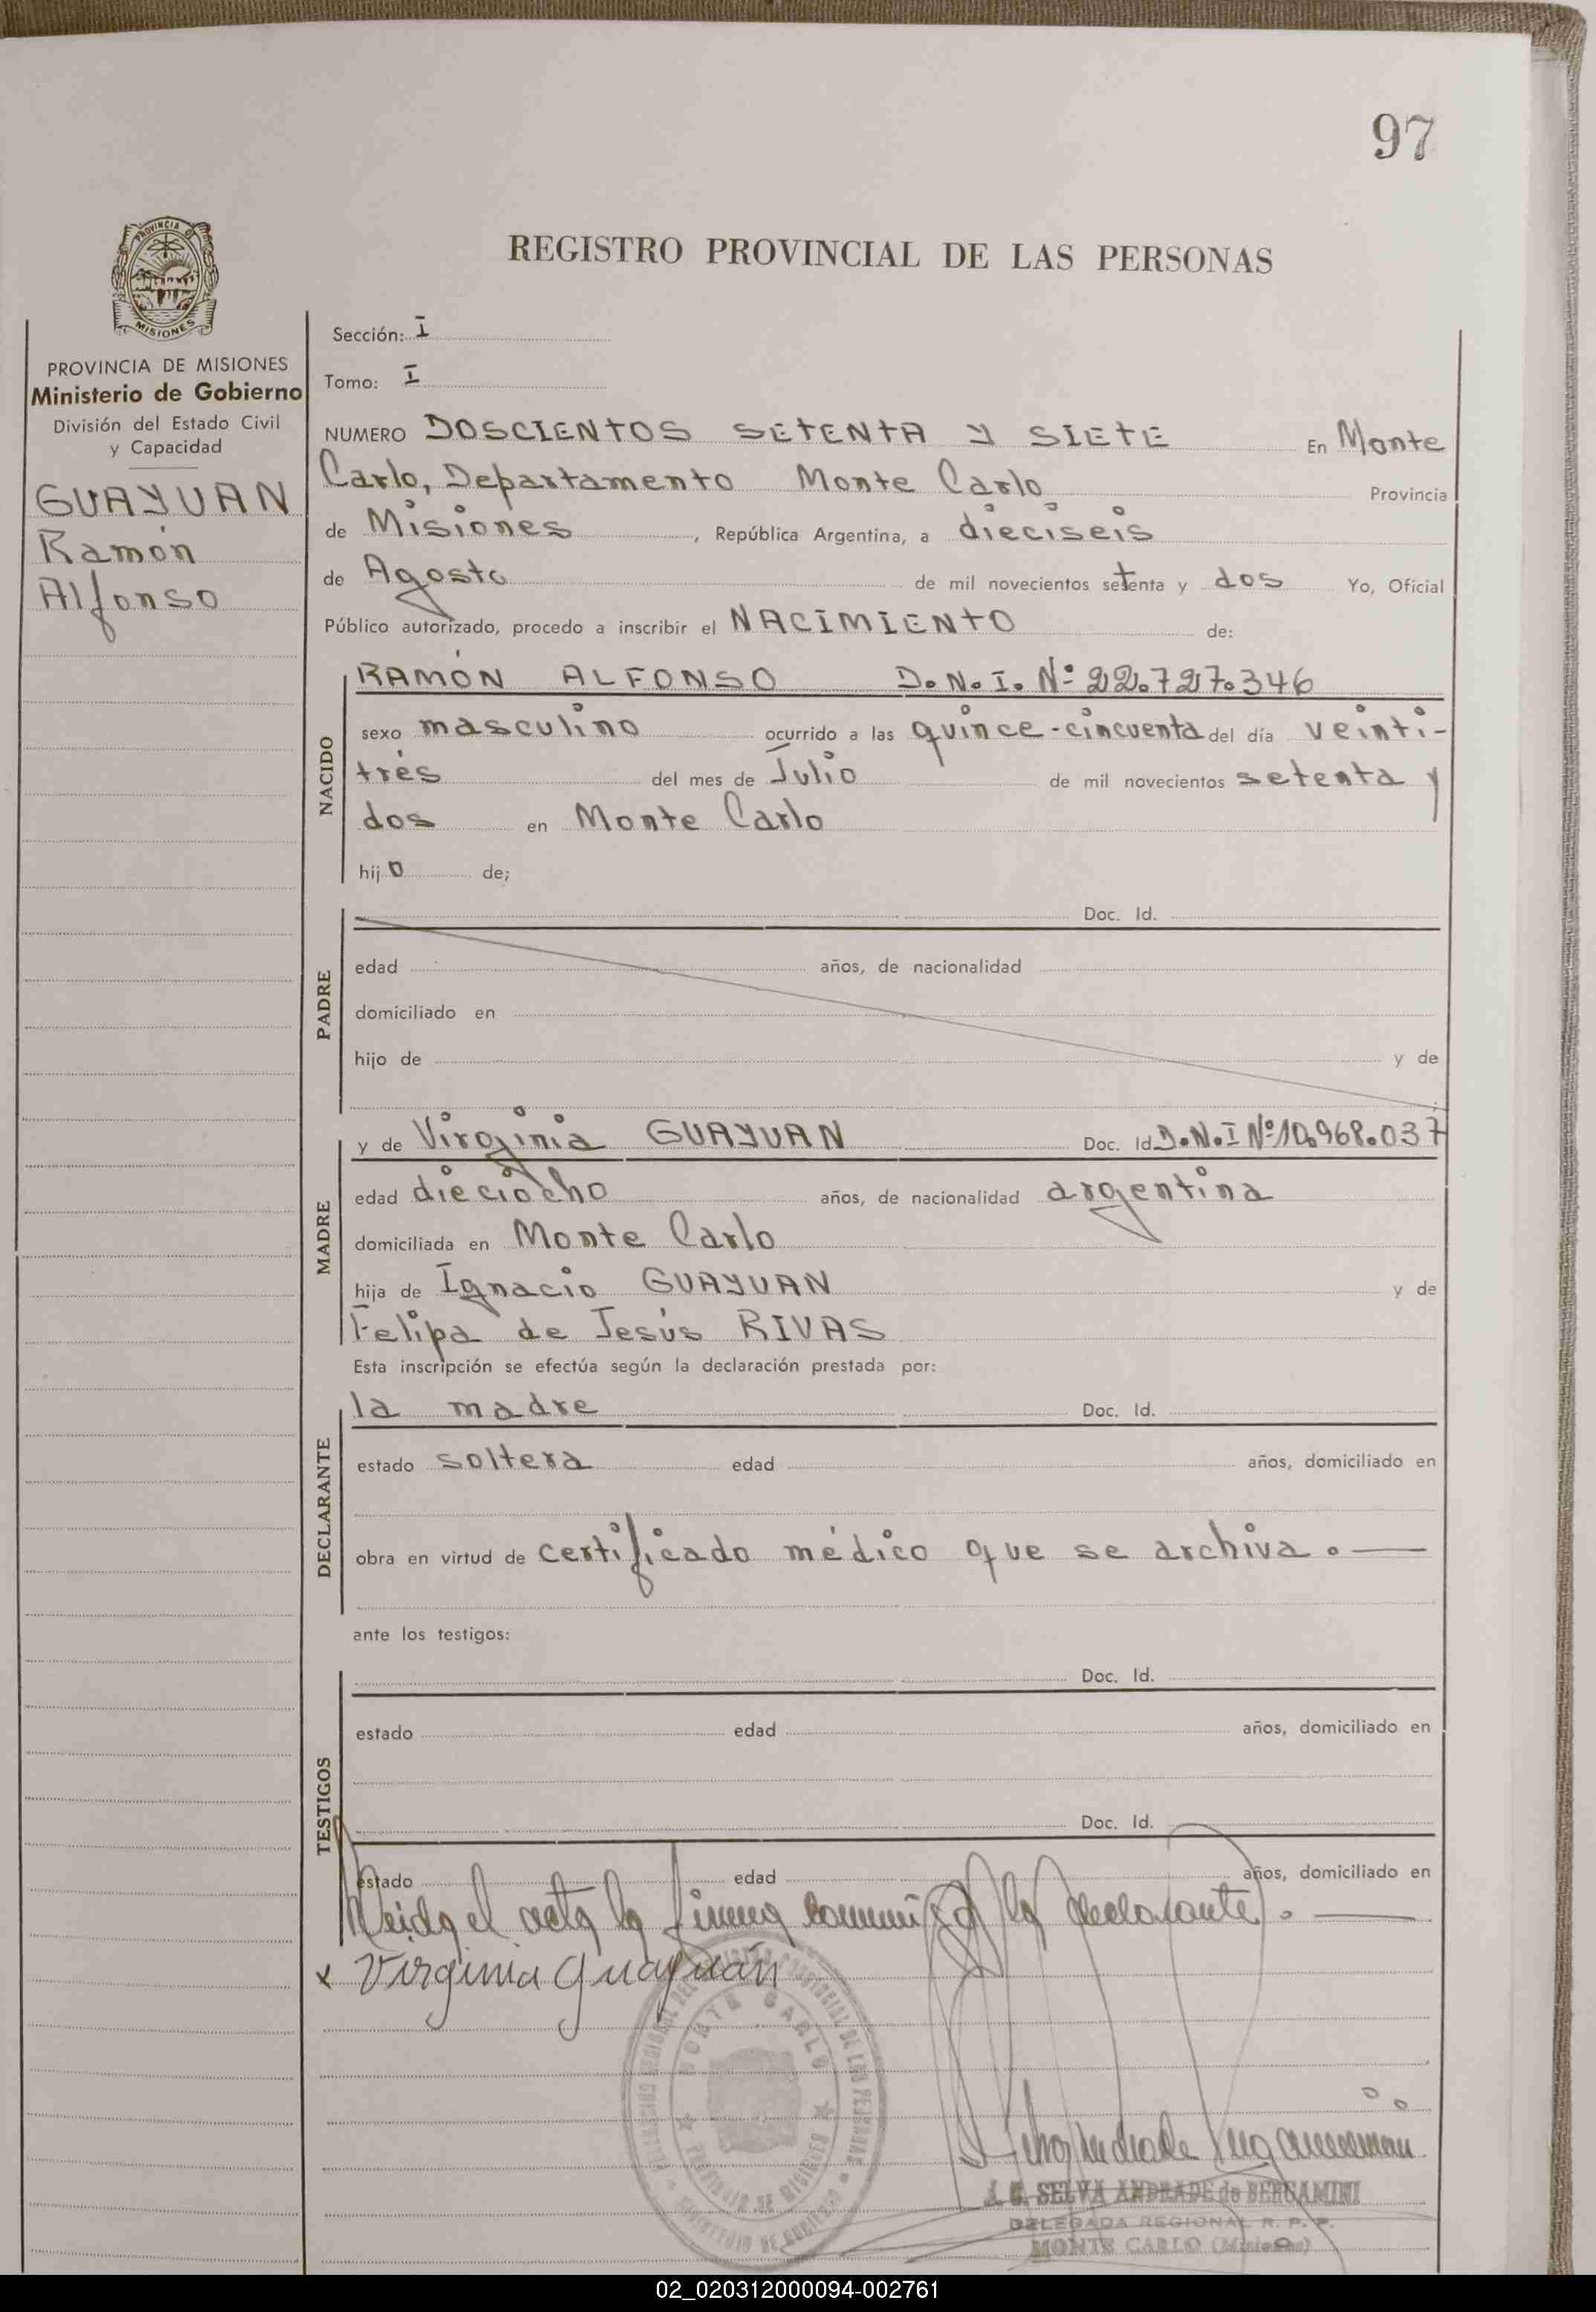 97
PROVINCIA DE
MISIONES
REGISTRO PROVINCIAL DE LAS PERSONAS
PROVINCIA DE MISIONES
Ministerio de Gobierno
División del Estado Civil
y Capacidad
GUAYUAN
Ramón
Alfonso
Sección: I
Tomo: I
NUMERO DOSCIENTOS SETENTA Y SIETE En Monte
Carlo, Departamento Monte Carlo Provincia
de Misiones, República Argentina, a dieciseis
de Agosto de mil novecientos setenta y dos Yo, Oficial
Público autorizado, procedo a inscribir el NACIMIENTO de:
NACIDO
RAMÓN ALFONSO D.N.I. Nº 22.727.346
sexo masculino ocurrido a las quince-cincuenta del día veinti-
trés del mes de Julio de mil novecientos setenta y
dos en Monte Carlo
hijo de;
PADRE
Doc. Id.
edad años, de nacionalidad
domiciliado en
hijo de y de
MADRE
y de Virginia GUAYUAN Doc. Id D.N.I Nº 10.968.037
edad dieciocho años, de nacionalidad argentina
domiciliada en Monte Carlo
hija de Ignacio GUAYUAN y de
Felipa de Jesús RIVAS
Esta inscripción se efectúa según la declaración prestada por:
DECLARANTE
la madre Doc. Id.
estado soltera edad años, domiciliado en
obra en virtud de certificado médico que se archiva. —
ante los testigos:
TESTIGOS
Doc. Id.
estado edad años, domiciliado en
Doc. Id.
estado edad años, domiciliado en
Leida el acta la firma conmigo la declarante. —
x Virginia Guayuán
MONTE CARLO
PROVINCIA DE MISIONES
MINISTERIO DE GOBIERNO
J. C. SELVA ANDRADE de BERGAMINI
DELEGADA REGIONAL R. P. P.
MONTE CARLO (Misiones)
02_020312000094-002761